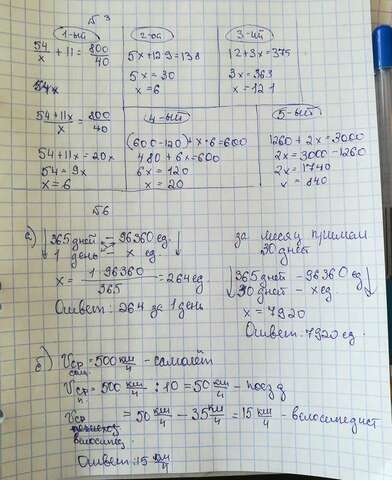 №3
1-ый
54/x + 11 = 800/40
54x
54+11x/x = 800/40
54+11x = 20x
54 = 9x
x = 6
2-ой
5x+129=138
5x = 30
x = 6
3-ий
12+3x=375
3x = 363
x = 121
4-ый
(600-120)+x·6=600
480+6x=600
6x = 120
x = 20
5-ый
1260+2x=3000
2x=3000-1260
2x=1740
x = 840
№6
а) 365 дней – 96360 ед.
1 день – x ед.
x = 1 96360/365 = 264 ед
Ответ: 264 за 1 день
за месяц примем
30 дней
365 дней – 96360 ед
30 дней – x ед.
x = 7920
Ответ: 7920 ед.
б) Vср сам. = 500 км/ч - самолёт
Vср п. = 500 км/ч : 10 = 50 км/ч - поезд
Vср велосипед. = 50 км/ч – 35 км/ч = 15 км/ч - велосипедист
Ответ: 15 км/ч